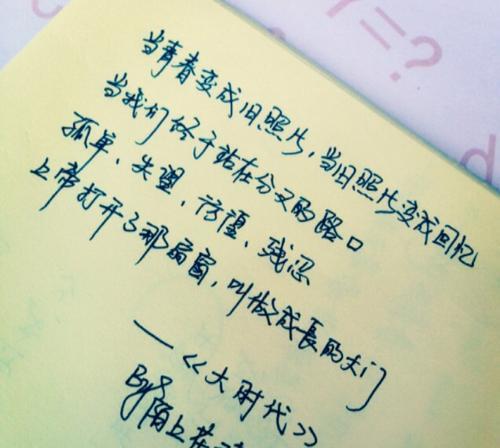 当青春变成旧照片,当旧照片变成回忆
当我们终于站在分叉的路口
孤单、失望、彷徨、残忍
上帝打开了那扇窗,叫做成長的大门
——《大时代》
By 陌上
Y=?